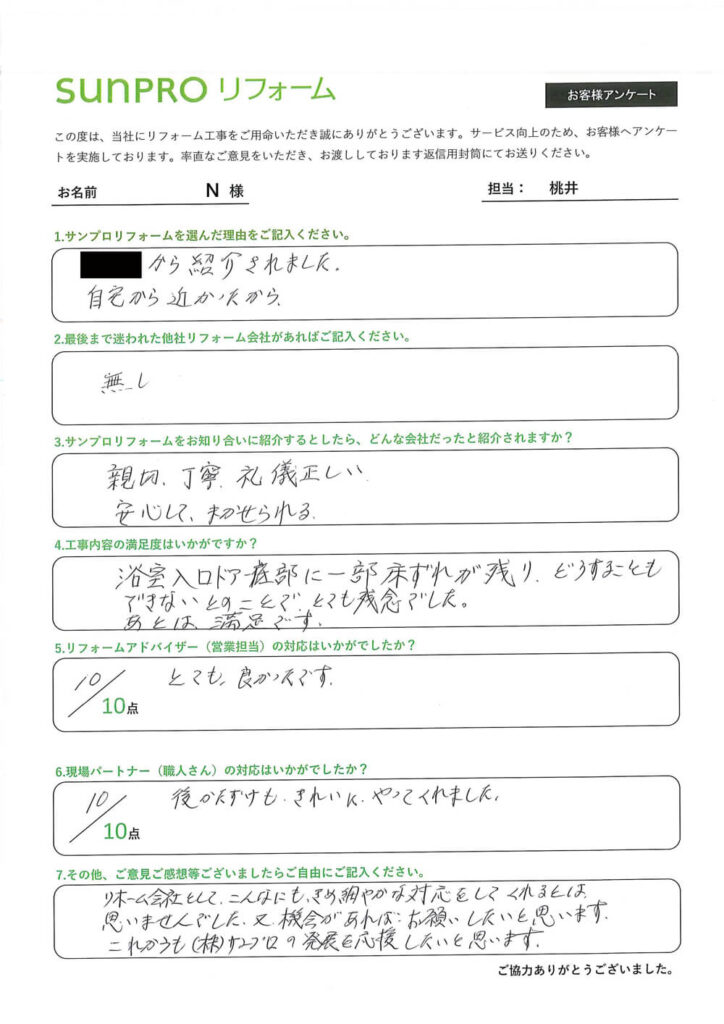 sunPRO リフォーム
お客様アンケート
この度は、当社にリフォーム工事をご用命いただき誠にありがとうございます。サービス向上のため、お客様へアンケー
トを実施しております。率直なご意見をいただき、お渡ししております返信用封筒にてお送りください。
お名前 N 様
担当： 桃井
1.サンプロリフォームを選んだ理由をご記入ください。
から紹介されました。
自宅から近かったから、
2.最後まで迷われた他社リフォーム会社があればご記入ください。
無し
3.サンプロリフォームをお知り合いに紹介するとしたら、どんな会社だったと紹介されますか？
親切、丁寧、礼儀正しい、
安心して、まかせられる、
4.工事内容の満足度はいかがですか？
浴室入口ドア底部に一部床ずれが残り、どうすることも
できないとのことで、とても残念でした。
あとは、満足です。
5.リフォームアドバイザー（営業担当）の対応はいかがでしたか？
10/10点 とても、良かったです。
6.現場パートナー（職人さん）の対応はいかがでしたか？
10/10点 後かたずけも、きれいに、やってくれました。
7.その他、ご意見ご感想等ございましたらご自由にご記入ください。
リホーム会社として、こんなにも、きめ細やかな対応をしてくれるとは、
思いませんでした、又、機会があれば、お願いしたいと思います。
これからも（株）サンプロの発展を応援したいと思います。
ご協力ありがとうございました。